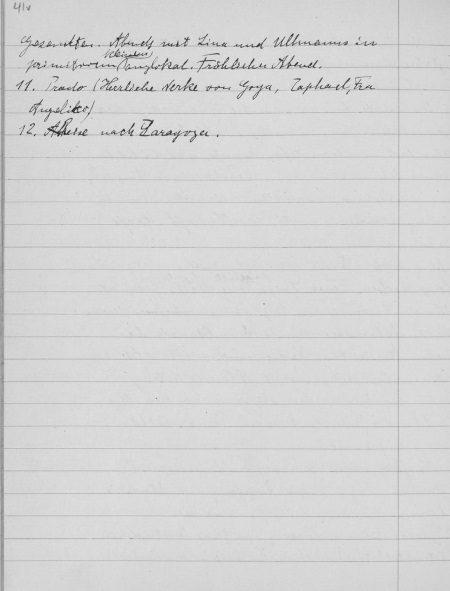 41v
Gesandten. Abends mit Lina und Ullmanns in
primitivem (kleinem) Tanzlokal. Fröhlicher Abend.
11. Prado (Herrliche Werke von Goya, Raphael, Fra
Angeliko)
12. Abreise nach Zaragoza.